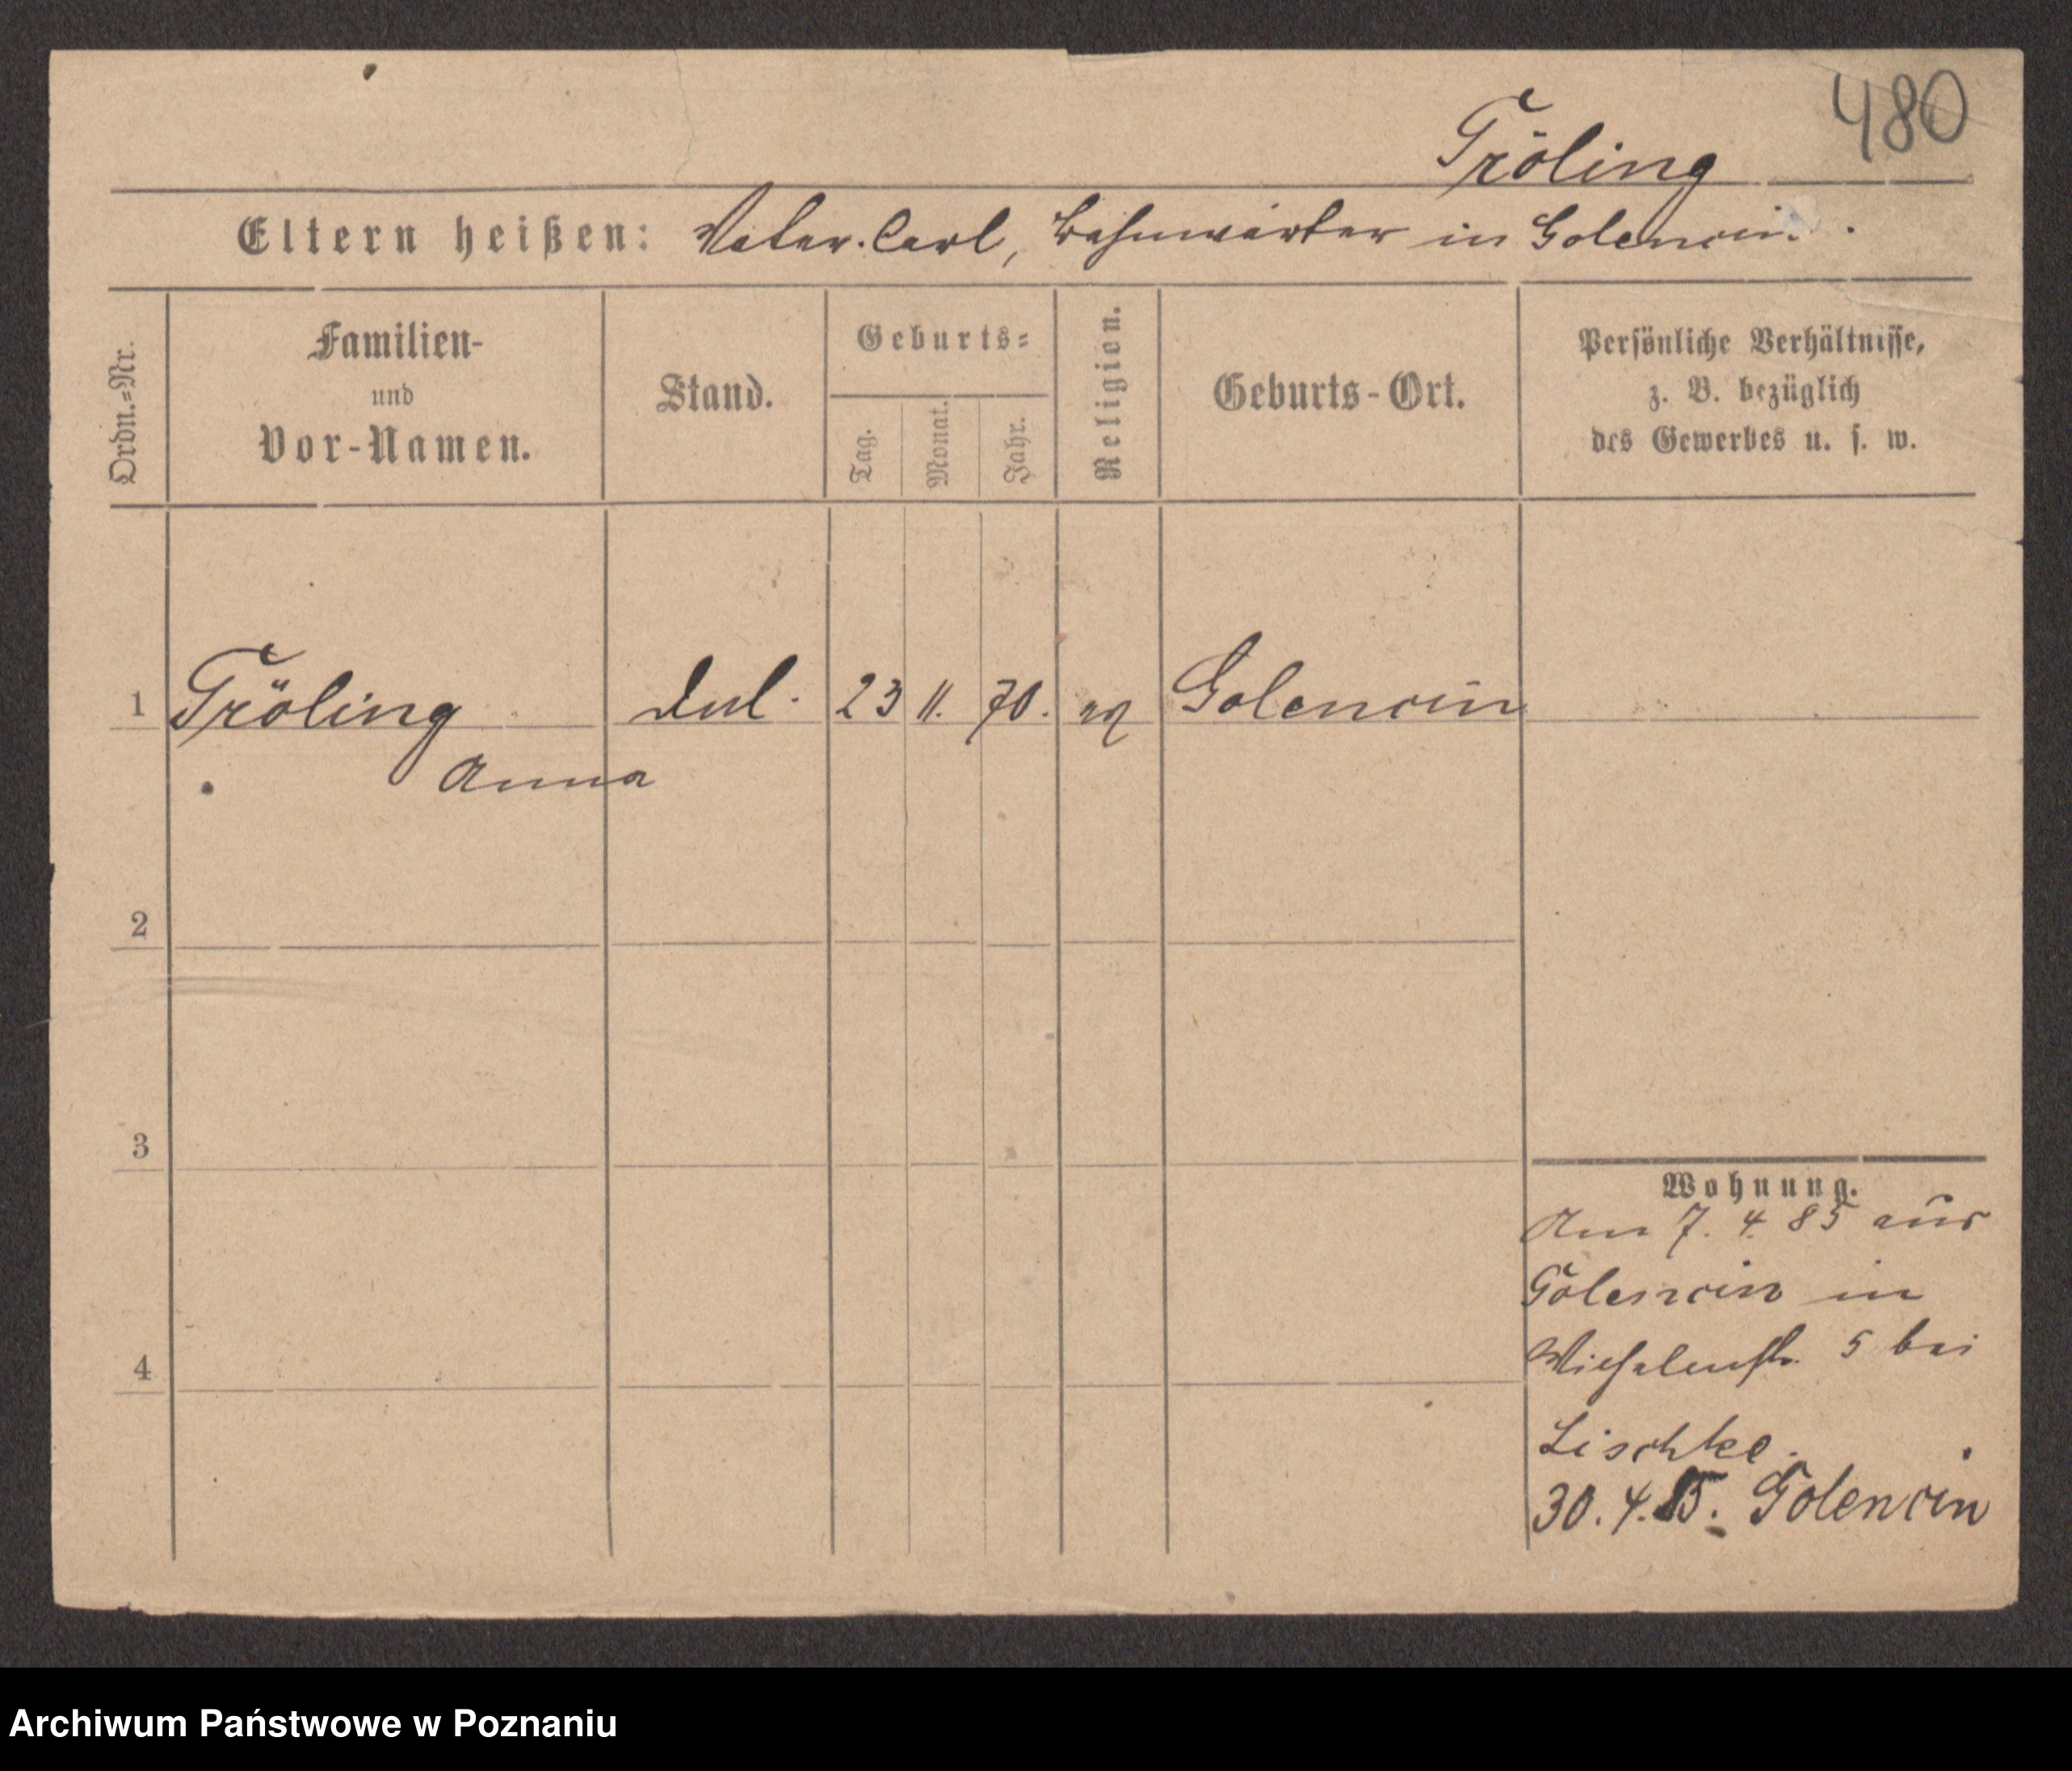 480
Tröling
Eltern heißen: Vater Carl, Bahnwärter in Golencin.
Ordn.=Nr.
Familien-
und
Vor-Namen.
Stand.
Geburts=
Tag.
Monat.
Jahr.
Religion.
Geburts-Ort.
Persönliche Verhältnisse,
z. B. bezüglich
des Gewerbes u. s. w.
1 Tröling 23 11. 70. ev Golencin
Anna
2
3
4
Wohnung.
Am 7. 4. 85 aus
Golencin in
5 bei
Lischke.
30. 4. 85. Golencin
Archiwum Państwowe w Poznaniu